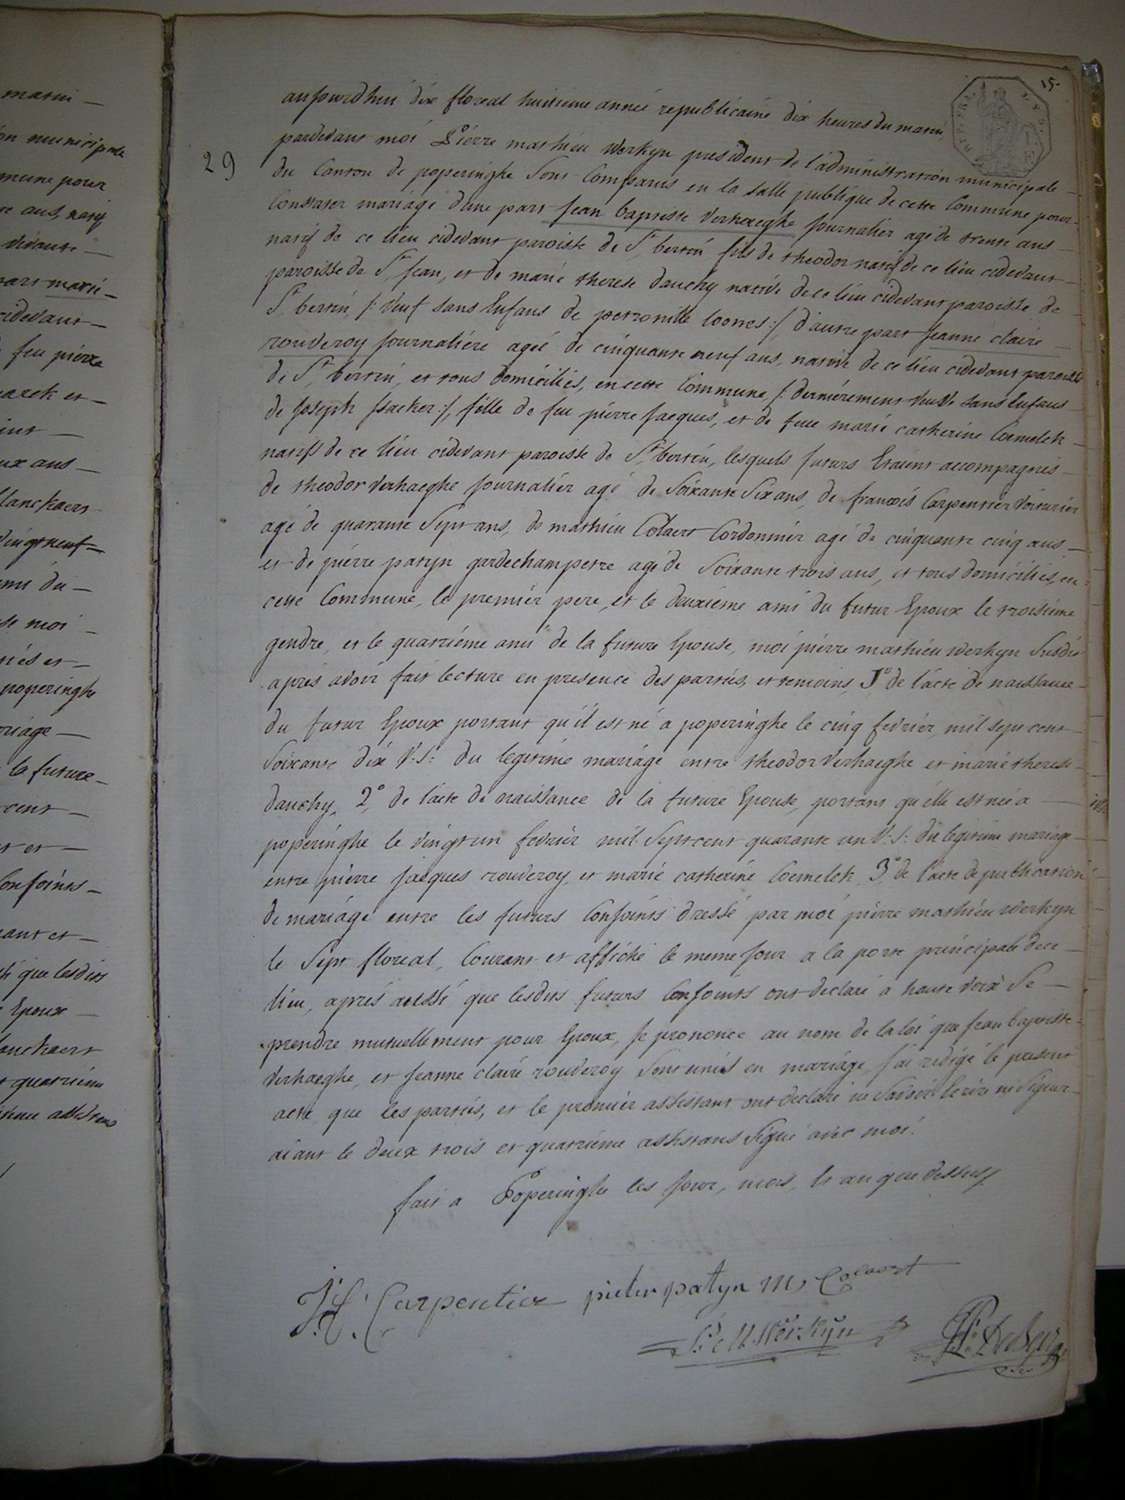 marin —
on municipale
mune pour
e aus, natif
vivante —
part marie —
cidevant —
feu pierre
aux ans —
Blanckaert
vingt neuf —
ami du —
moi —
poperinghe
riage —
la future —
cent —
Conjoints —
que lesdits
Epoux —
lanckaert
quatrieme
15.
29
aujourdhui dix floreal huitieme année republicaine dix heures du matin
pardevant moi Pierre mathieu Werkyn president de l'administration municipale —
du Canton de poperinghe Sont Comparus en la salle publique de cette Commune pour —
Constater mariage d'une part jean baptiste Verhaeghe journalier agé de trente ans —
natif de ce lieu cidevant paroisse de St bertin fils de theodor natif de ce lieu cidevant —
paroisse de St Jean, et de marie therese dauchy native de ce lieu cidevant paroisse de —
St bertin /: veuf sans Enfans de petronille Coones :/ d'autre part jeanne claire —
rouderoy journaliére agée de cinquante neuf ans, native de ce lieu cidevant paroisse
de St bertin, et tous domiciliés, en cette Commune /: derniérement veuve sans Enfans —
de joseph jsacker :/, fille de feu piérre jacques, et de feue marie catherine Coemelck —
natifs de ce lieu cidevant paroisse de St bertin, lesquels futurs Etaient accompagnés —
de theodor Verhaeghe journalier agé de Soixante Six ans, de françois Carpentier Voiturier
agé de quarante Sept ans, de mathieu Colaert Cordonnier agé de cinquante cinq ans —
et de piérre patyn gardechampetre agé de Soixante trois ans, et tous domiciliés, en
cette Commune, le premiér pere, et le deuxieme ami du futur Epoux le troisiéme
gendre, et le quatriéme ami de la future Epouse, moi piérre mathieu Werkyn Susdit
aprés avoir fait lecture en presence des parties, et temoins, 1° de l'acte de naissance —
du futur Epoux portant qu'il est né a poperinghe le cinq fevriér mil sept cent —
Soixante dix V:S: du legitime mariage entre theodor Verhaeghe et marie therese
dauchy, 2° de l'acte de naissance de la future Epouse, portant qu'elle est née a —
poperinghe le vingt un fevriér mil Sept cent quarante un V:S: du legitime mariage
entre piérre jacques rouderoy, et marie catherine Coemelck, 3° de l'acte de publication
de mariage entre les futurs Conjoints dressé par moi piérre mathieu Werkyn
le Sept floreal, Courant et affiché le meme jour a la porte principale de ce —
lieu, aprés aussi que lesdits futurs Conjoints ont declaré a haute voix Se —
prendre mutuellement pour Epoux, je prononce au nom de la loi que jean baptiste —
Verhaeghe, et jeanne claire rouderoy Sont unis en mariage, j'ai redigé le present
acte que les parties, et le premiér assistant ont declaré ne savoir lecrire ni signer
aiant le deux trois et quatrieme assistans Signé avec moi.
fait a Poperinghe les jour, mois, et an que dessus
Carpentier pieter patyn M, Colaert
P: M Werkyn